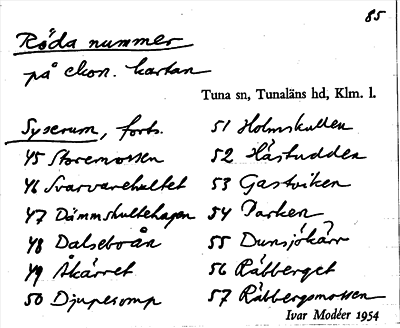 85
Röda nummer
på ekon. kartan
Tuna sn, Tunaläns hd, Klm. l.
Syserum, forts.
45 Storemossen
46 Svarvarehultet
47 Dämmshultehagen
48 Dalseboån
49 Åkärret
50 Djupesomp
51 Holmskullen
52 Hästudden
53 Gastviken
54 Parken
55 Dunsjökärr
56 Råbberget
57 Råbbergsmossen
Ivar Modéer 1954